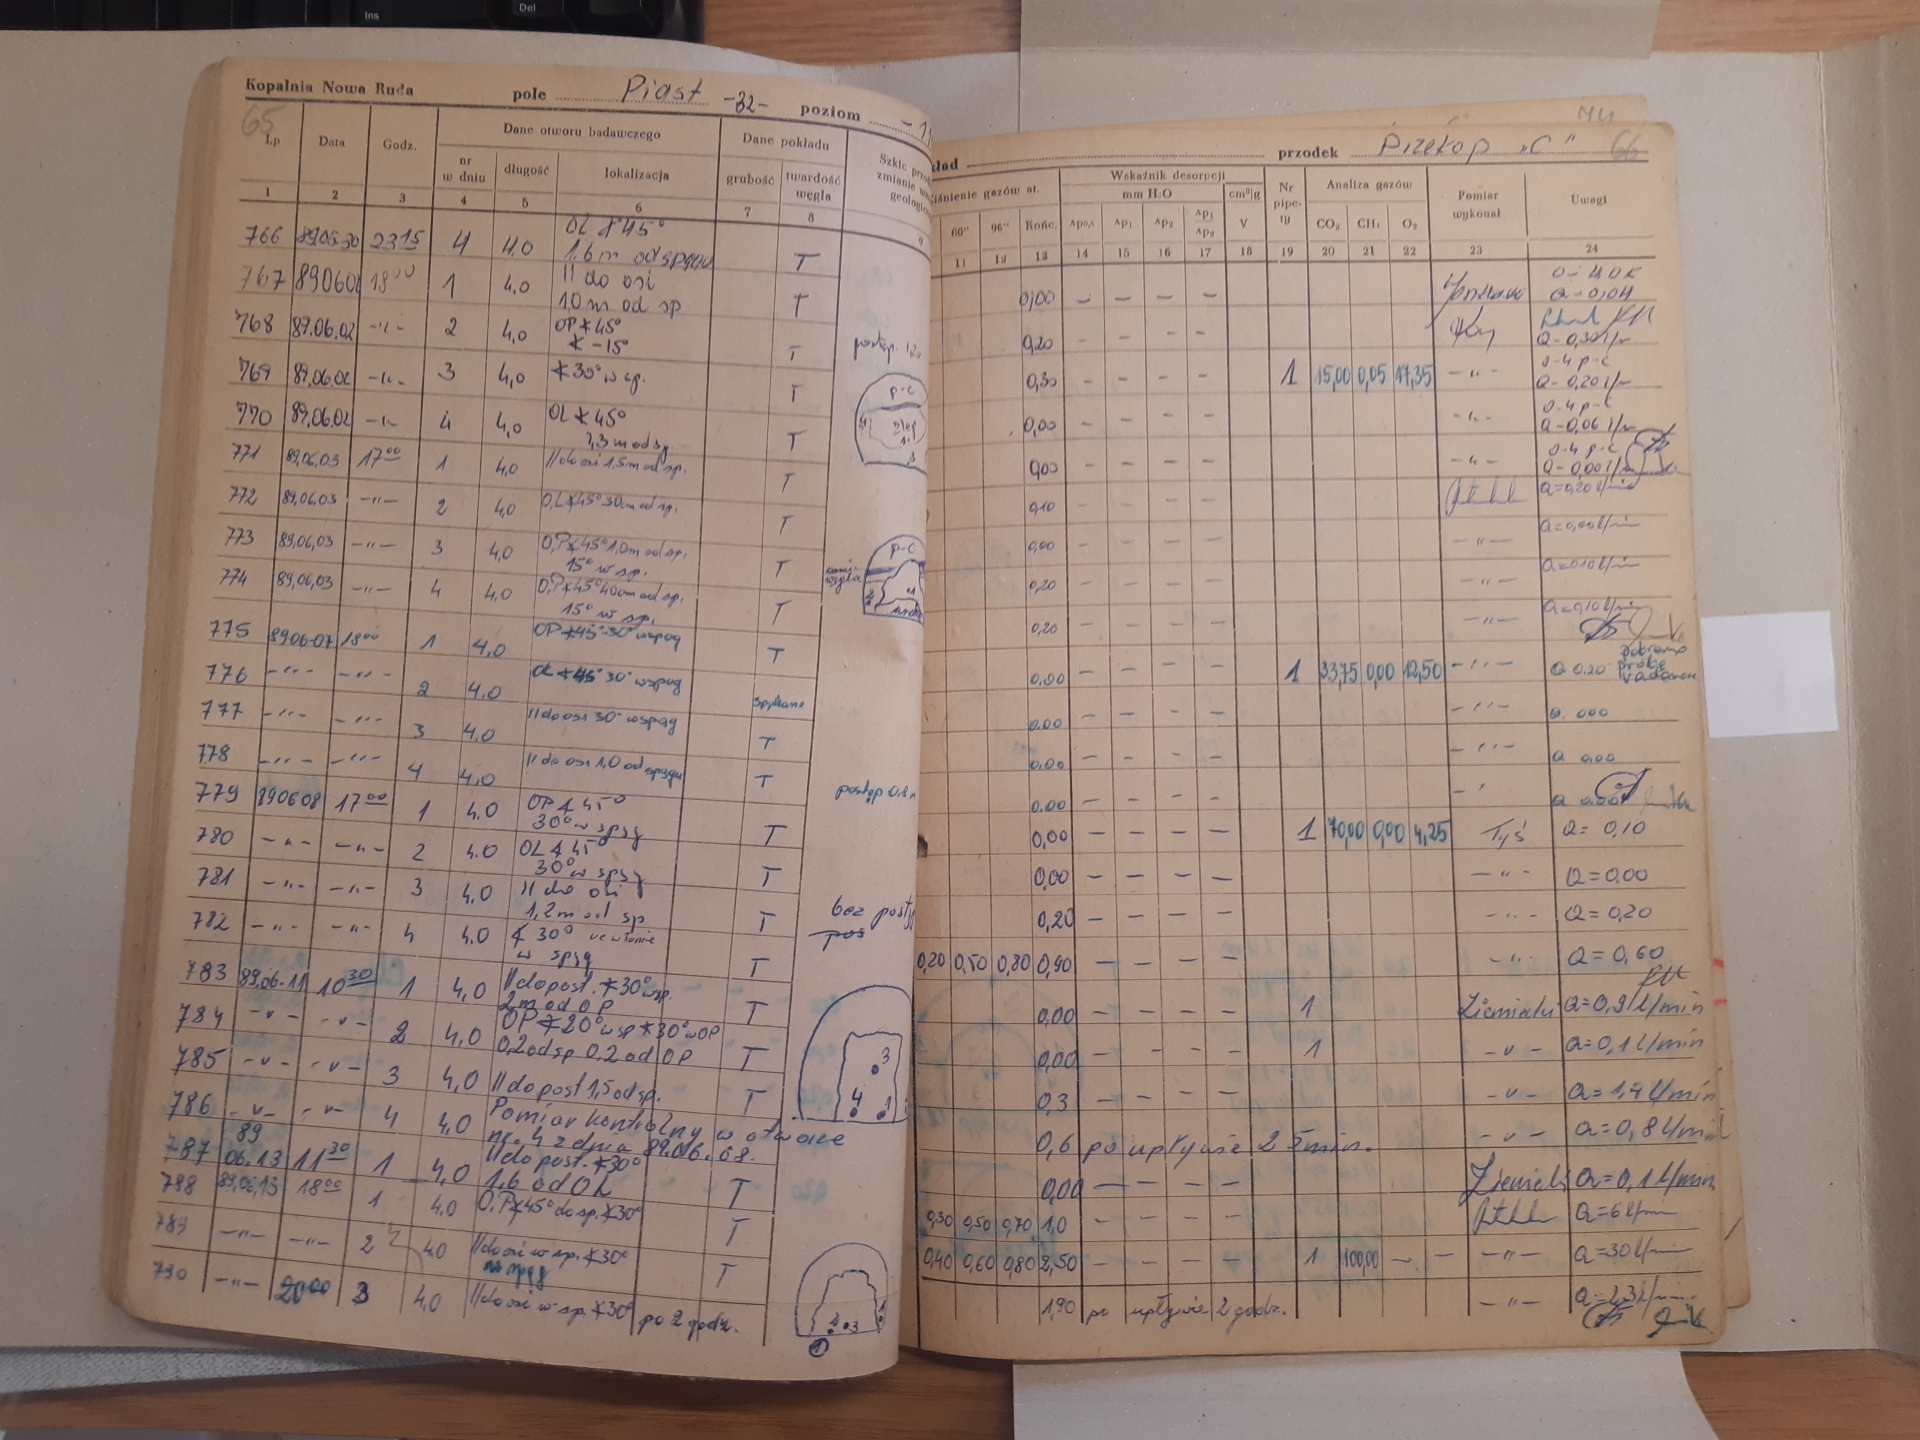 Ins
Del
Kopalnia Nowa Ruda pole Piast -32- poziom
65
Lp Data Godz. Dane otworu badawczego Dane pokładu
nr w dniu długość lokalizacja grubość twardość węgla
1 2 3 4 5 6 7 8
766 89.05.30 23 15 4 4.0 OL ∢ 45° 1,6 m od spągu T
767 890602 18 00 1 4,0 II do osi 1,0 m od sp T
768 89.06.02 -"- 2 4,0 OP ∢ 45° ∢ -15° T
769 89.06.02 -"- 3 4,0 ∢ 30° w sp. T
770 89.06.02 -"- 4 4,0 OL ∢ 45° 1,3 m od sp. T
771 89.06.03 17 00 1 4,0 II do osi 1.5 m od sp. T
772 89.06.03 -"- 2 4,0 O.L ∢ 45° 30cm od sp. T
773 89.06.03 -"- 3 4,0 O.P ∢ 45° 1,0m od sp. 15° w sp. T
774 89.06.03 -"- 4 4,0 O.P ∢ 45° 40cm od sp. 15° w sp. T
775 8906-07 18 00 1 4.0 OP ∢ 45° 30° w spąg T
776 -"- -"- 2 4.0 OL ∢ 45° 30° w spąg
777 -"- -"- 3 4.0 II do osi 30° w spąg T
778 -"- -"- 4 4.0 II do osi 1.0 od spągu T
779 890608 17 00 1 4.0 OP ∢ 45° 30° w spąg T
780 -"- -"- 2 4.0 OL ∢ 45° 30° w spąg T
781 -"- -"- 3 4.0 II do osi 1,2 m od sp T
782 -"- -"- 4 4.0 ∢ 30° we włomie w spąg T
783 89.06.11 10 30 1 4,0 II do post. ∢ 30° w sp. 2 m od OP T
784 -"- -"- 2 4,0 OP ∢ 20° w sp ∢ 30° w OP 0,2 od sp 0.2 od OP T
785 -"- -"- 3 4,0 II do post 1,5 od sp. T
786 -"- -"- 4 4,0 Pomiar kontrolny w otworze nr. 4 z dnia 89.06.08.
787 89 06.13 11 30 1 4,0 II do post. ∢ 30° 1.6 od OL T
798 89.06.13 18 00 1 4.0 O.P ∢ 45° do sp. ∢ 30° T
789 -"- -"- 2 4.0 II do osi w sp. ∢ 30° na spąg T
790 -"- 20 00 3 4,0 II do osi w sp. ∢ 30° po 2 godz.
p-c
p-c
postęp 0.8
bez postę
pos
3
4
1
2 3
1
przodek Przekop „C” 66
Wskaźnik desorpcji
mm H₂O cm³/g
Nr pipety Analiza gazów Pomiar wykonał Uwagi
60" 96" Końc. Δp₀,₅ Δp₁ Δp₂ Δp₁ Δp₂ V CO₂ CH₄ O₂
11 12 13 14 15 16 17 18 19 20 21 22 23 24
0,00 - - - - Q-0,04
0,20 - - - - Q-0,30 l/m
0,30 - - - - 1 15,00 0,05 17,35 -"- 0-4 p-c Q-0,20 l/m
0,00 - - - - -"- 0-4 p-c Q-0,06 l/m
0,00 - - - - -"- 0-4 p-c Q-0,00 l/m
0,10 - - - - Q=0,20 l/min
0,00 - - - - -"- Q=0,00 l/min
0,20 - - - - -"- Q=0,10 l/min
0,20 - - - - -"- Q=0,10 l/min
0.00 - - - - 1 33,75 0,00 12,50 -"- Q 0.20 próbę
0.00 - - - - -"- Q. 000
0.00 - - - - -"- Q 0.00
0.00 - - - - -"- Q 0.00
0,00 - - - - 1 70,00 0,00 4,25 Tyś Q= 0,10
0,00 - - - - -"- Q=0,00
0,20 - - - - -"- Q=0,20
0,20 0,50 0,80 0,90 - - - - -"- Q=0,60
0,00 - - - - 1 Ziemiański Q=0,9 l/min
0,00 - - - - 1 -"- Q=0,1 l/min
0,3 - - - - -"- Q=1,4 l/min
0,6 po upływie 25 min. -"- Q=0,8 l/min
0,00 - - - - Q=0,1 l/min
0,30 0,50 0,70 1,0 - - - - Q=6 l/min
0,40 0,60 0,80 2,50 - - - - 1 100,00 - - -"- Q=30 l/min
1,90 po upływie 2 godz. -"- Q=2,3 l/min